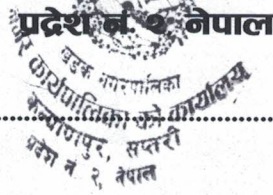 प्रदेश नं. २ नेपाल
खडक नगरपालिका
कार्यपालिकाको कार्यालय
कल्याणपुर, सप्तरी
प्रदेश नं २, नेपाल